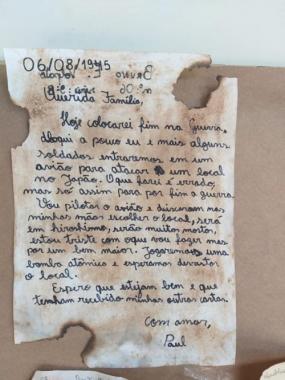 06/08/1945
Querida Família,
Hoje colocarei fim na Guerra,
daqui a pouco eu e mais alguns
soldados entraremos em um
avião para atacar um local
no Japão. O que farei é errado,
mas só assim para por fim a guerra.
Vou pilotar o avião e deixaram nas
minhas mãos escolher o local, será
em hiroshima, serão muitos mortos,
estou triste com o que vou fazer mas
por um bem maior. Jogaremos uma
bomba atômica e esperamos devastar
o local.
Espero que estejam bem e que
tenham recebido minhas outras cartas.
Com amor,
Paul